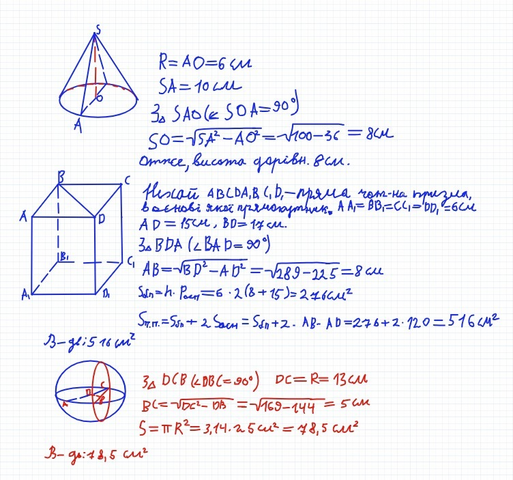 S
O
A
R = AO = 6 см
SA = 10 см
З △ SAO (∠ SOA = 90°)
SO = √SA² − AO² = √100−36 = 8 см
Отже, висота дорівн. 8 см.
B C
A D
B₁ C₁
A₁ D₁
Нехай ABCDA₁B₁C₁D₁ – пряма чот-на призма,
в основі якої прямокутник. AA₁ = BB₁ = CC₁ = DD₁ = 6 см
AD = 15 см, BD = 17 см.
З △ BDA (∠ BAD = 90°)
AB = √BD² − AD² = √289 − 225 = 8 см
Sбп = h · Pосн = 6 · 2(8 + 15) = 276 см²
Sп.п. = Sбп + 2 Sосн = Sбп + 2 · AB · AD = 276 + 2 · 120 = 516 см²
В-дь: 516 см²
З △ DCB (∠DBC = 90°) DC = R = 13 см
BC = √DC² − DB = √169 − 144 = 5 см
S = πR² = 3,14 · 25 см² = 78,5 см²
В-дь: 78,5 см²